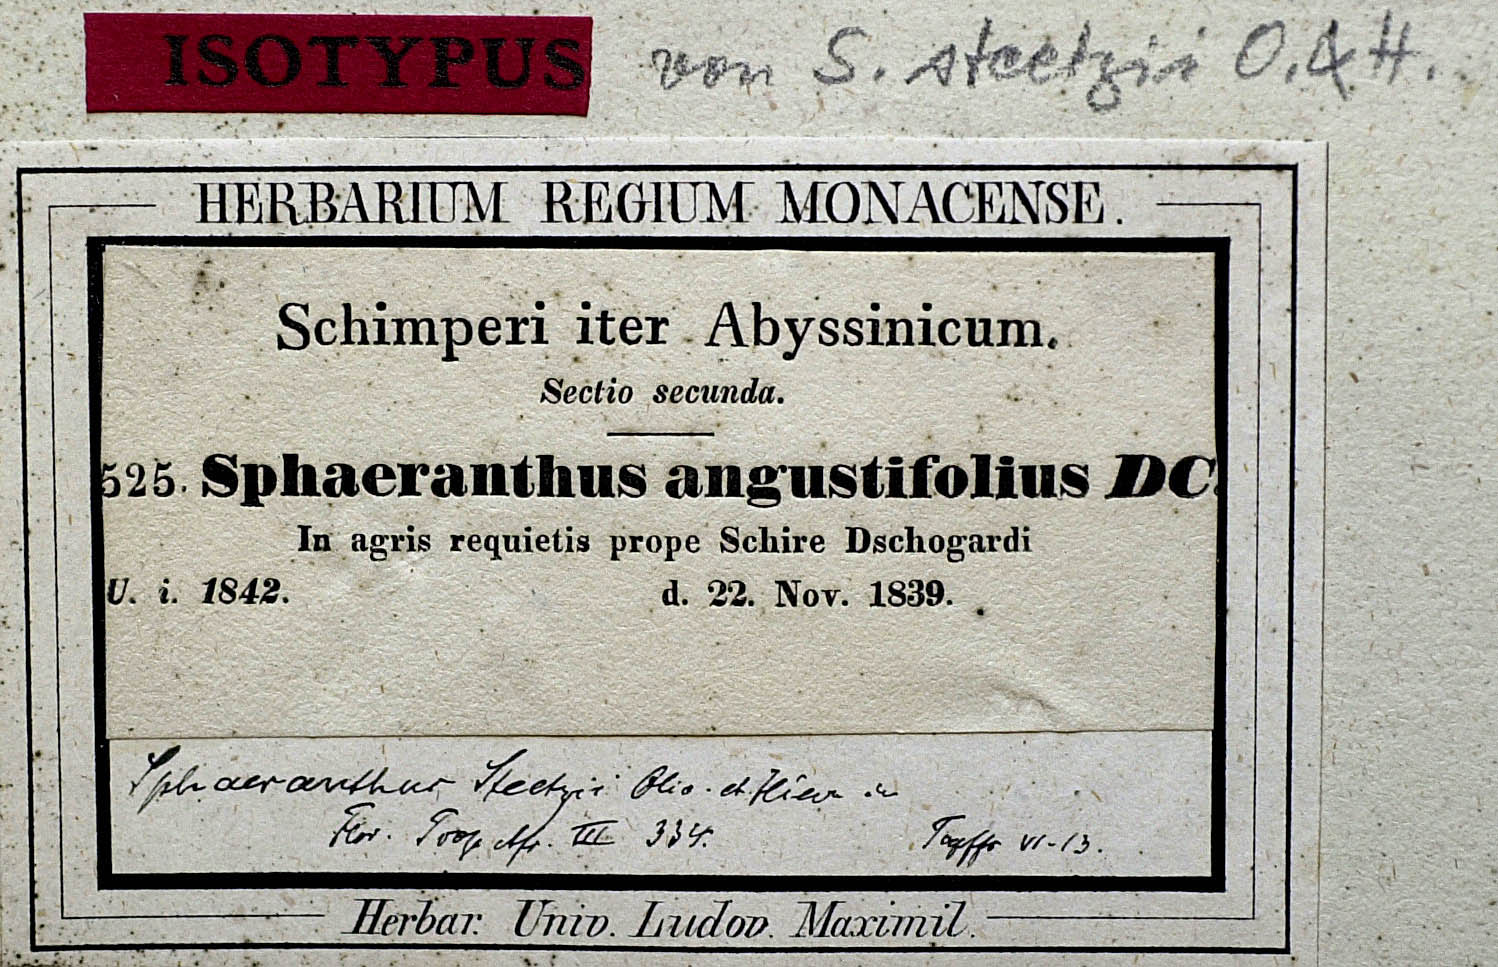 ISOTYPUS von S. steetzii O. & H.
HERBARIUM REGIUM MONACENSE.
Schimperi iter Abyssinicum.
Sectio secunda.
525. Sphaeranthus angustifolius DC.
In agris requietis prope Schire Dschogardi
U. i. 1842. d. 22. Nov. 1839.
Sphaeranthus Steetzii Oliv. et Hiern in
Flor. Trop. Afr. III 334. VI-13.
Herbar. Univ. Ludov. Maximil.